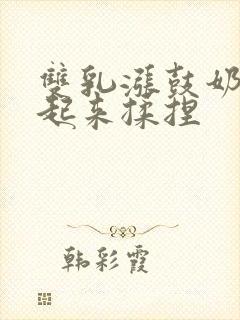 雙乳漲鼓奶
起来揉捏
韩彩霞